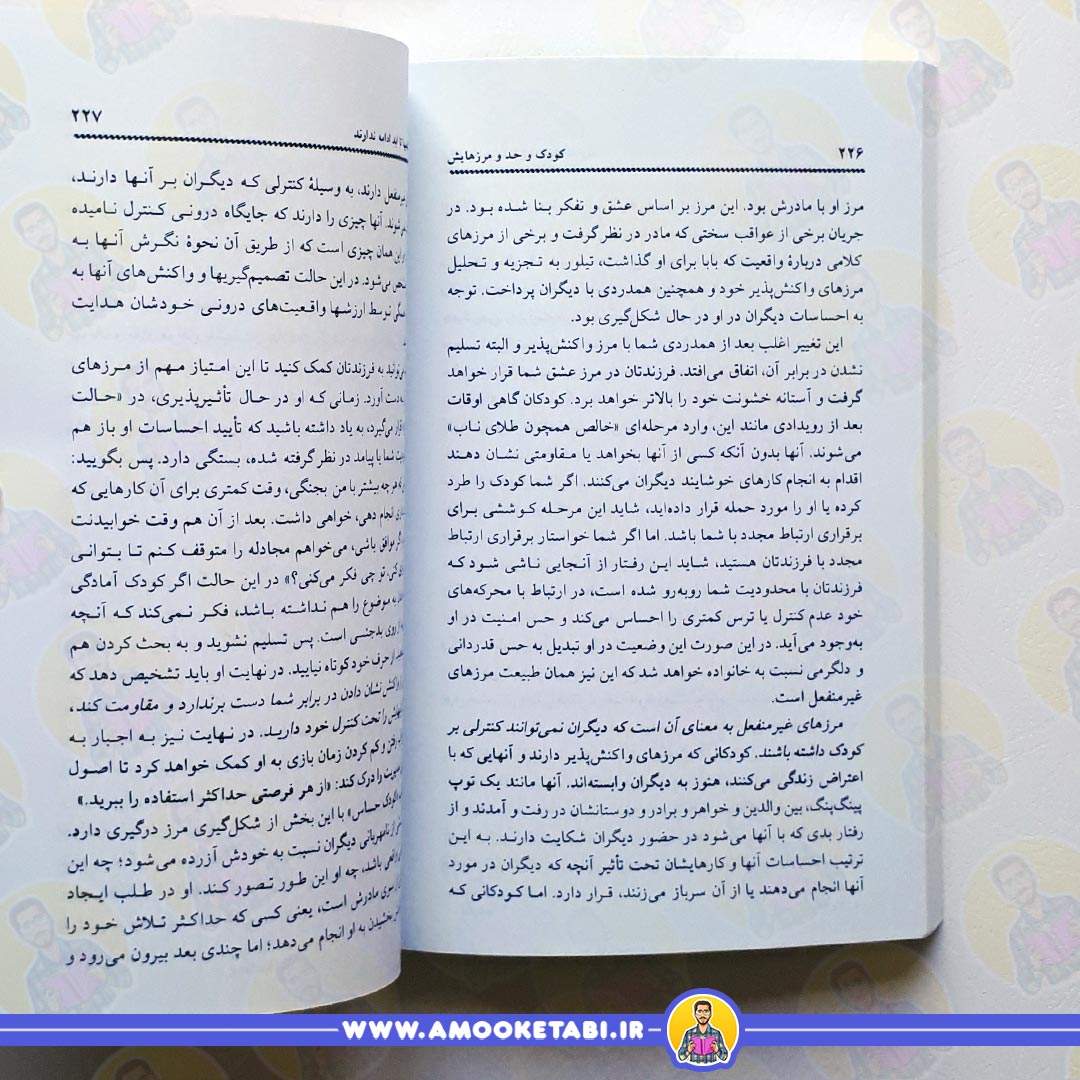 ۲۲۶
کودک و حد و مرزهایش
مرز او با مادرش بود. این مرز بر اساس عشق و تفکر بنا شده بود. در
جریان برخی از عواقب سختی که مادر در نظر گرفت و برخی از مرزهای
کلامی دربارهٔ واقعیت که بابا برای او گذاشت، تیلور به تجزیه و تحلیل
مرزهای واکنش‌پذیر خود و همچنین همدردی با دیگران پرداخت. توجه
به احساسات دیگران در او در حال شکل‌گیری بود.
این تغییر اغلب بعد از همدردی شما با مرز واکنش‌پذیر و البته تسلیم
نشدن در برابر آن، اتفاق می‌افتد. فرزندتان در مرز عشق شما قرار خواهد
گرفت و آستانه خشونت خود را بالاتر خواهد برد. کودکان گاهی اوقات
بعد از رویدادی مانند این، وارد مرحله‌ای «خالص همچون طلای ناب»
می‌شوند. آنها بدون آنکه کسی از آنها بخواهد یا مقاومتی نشان دهند
اقدام به انجام کارهای خوشایند دیگران می‌کنند. اگر شما کودک را طرد
کرده یا او را مورد حمله قرار داده‌اید، شاید این مرحله کوششی برای
برقراری ارتباط مجدد با شما باشد. اما اگر شما خواستار برقراری ارتباط
مجدد با فرزندتان هستید، شاید این رفتار از آنجایی ناشی شود که
فرزندتان با محدودیت شما روبه‌رو شده است، در ارتباط با محرکه‌های
خود عدم کنترل یا ترس کمتری را احساس می‌کند و حس امنیت در او
به‌وجود می‌آید. در این صورت این وضعیت در او تبدیل به حس قدردانی
و دلگرمی نسبت به خانواده خواهد شد که این نیز همان طبیعت مرزهای
غیرمنفعل است.
مرزهای غیرمنفعل به معنای آن است که دیگران نمی‌توانند کنترلی بر
کودک داشته باشند. کودکانی که مرزهای واکنش‌پذیر دارند و آنهایی که با
اعتراض زندگی می‌کنند، هنوز به دیگران وابسته‌اند. آنها مانند یک توپ
پینگ‌پنگ، بین والدین و خواهر و برادر و دوستانشان در رفت و آمدند و از
رفتار بدی که با آنها می‌شود در حضور دیگران شکایت دارند. به این
ترتیب احساسات آنها و کارهایشان تحت تأثیر آنچه که دیگران در مورد
آنها انجام می‌دهند یا از آن سرباز می‌زنند، قرار دارد. اما کودکانی که
تا ابد ادامه ندارند
۲۲۷
دارند، به وسیلهٔ کنترلی که دیگران بر آنها دارند،
آنها چیزی را دارند که جایگاه درونی کنترل نامیده
این همان چیزی است که از طریق آن نحوهٔ نگرش آنها به
می‌شود. در این حالت تصمیم‌گیریها و واکنش‌های آنها به
توسط ارزشها واقعیت‌های درونی خودشان هدایت
به فرزندتان کمک کنید تا این امتیاز مهم از مرزهای
آورد. زمانی که او در حال تأثیرپذیری، در «حالت
می‌گیرد، به یاد داشته باشید که تأیید احساسات او باز هم
شما با پیامد در نظر گرفته شده، بستگی دارد. پس بگویید:
هر چه بیشتر با من بجنگی، وقت کمتری برای آن کارهایی که
انجام دهی، خواهی داشت. بعد از آن هم وقت خوابیدنت
موافق باشی، می‌خواهم مجادله را متوقف کنم تا بتوانی
تو چی فکر می‌کنی؟» در این حالت اگر کودک آمادگی
موضوع را هم نداشته باشد، فکر نمی‌کند که آنچه
روی بدجنسی است. پس تسلیم نشوید و به بحث کردن هم
از حرف خود کوتاه نیایید. در نهایت او باید تشخیص دهد که
نشان دادن در برابر شما دست برندارد و مقاومت کند،
را تحت کنترل خود دارید. در نهایت نیز به اجبار به
رفتن و کم کردن زمان بازی به او کمک خواهد کرد تا اصول
را درک کند: «از هر فرصتی حداکثر استفاده را ببرید.»
کودک حساس» با این بخش از شکل‌گیری مرز درگیری دارد.
از نامهربانی دیگران نسبت به خودش آزرده می‌شود؛ چه این
باشد، چه او این طور تصور کند. او در طلب ایجاد
مادرش است، یعنی کسی که حداکثر تلاش خود را
بخشیدن به او انجام می‌دهد؛ اما چندی بعد بیرون می‌رود و
WWW.AMOOKETABI.IR